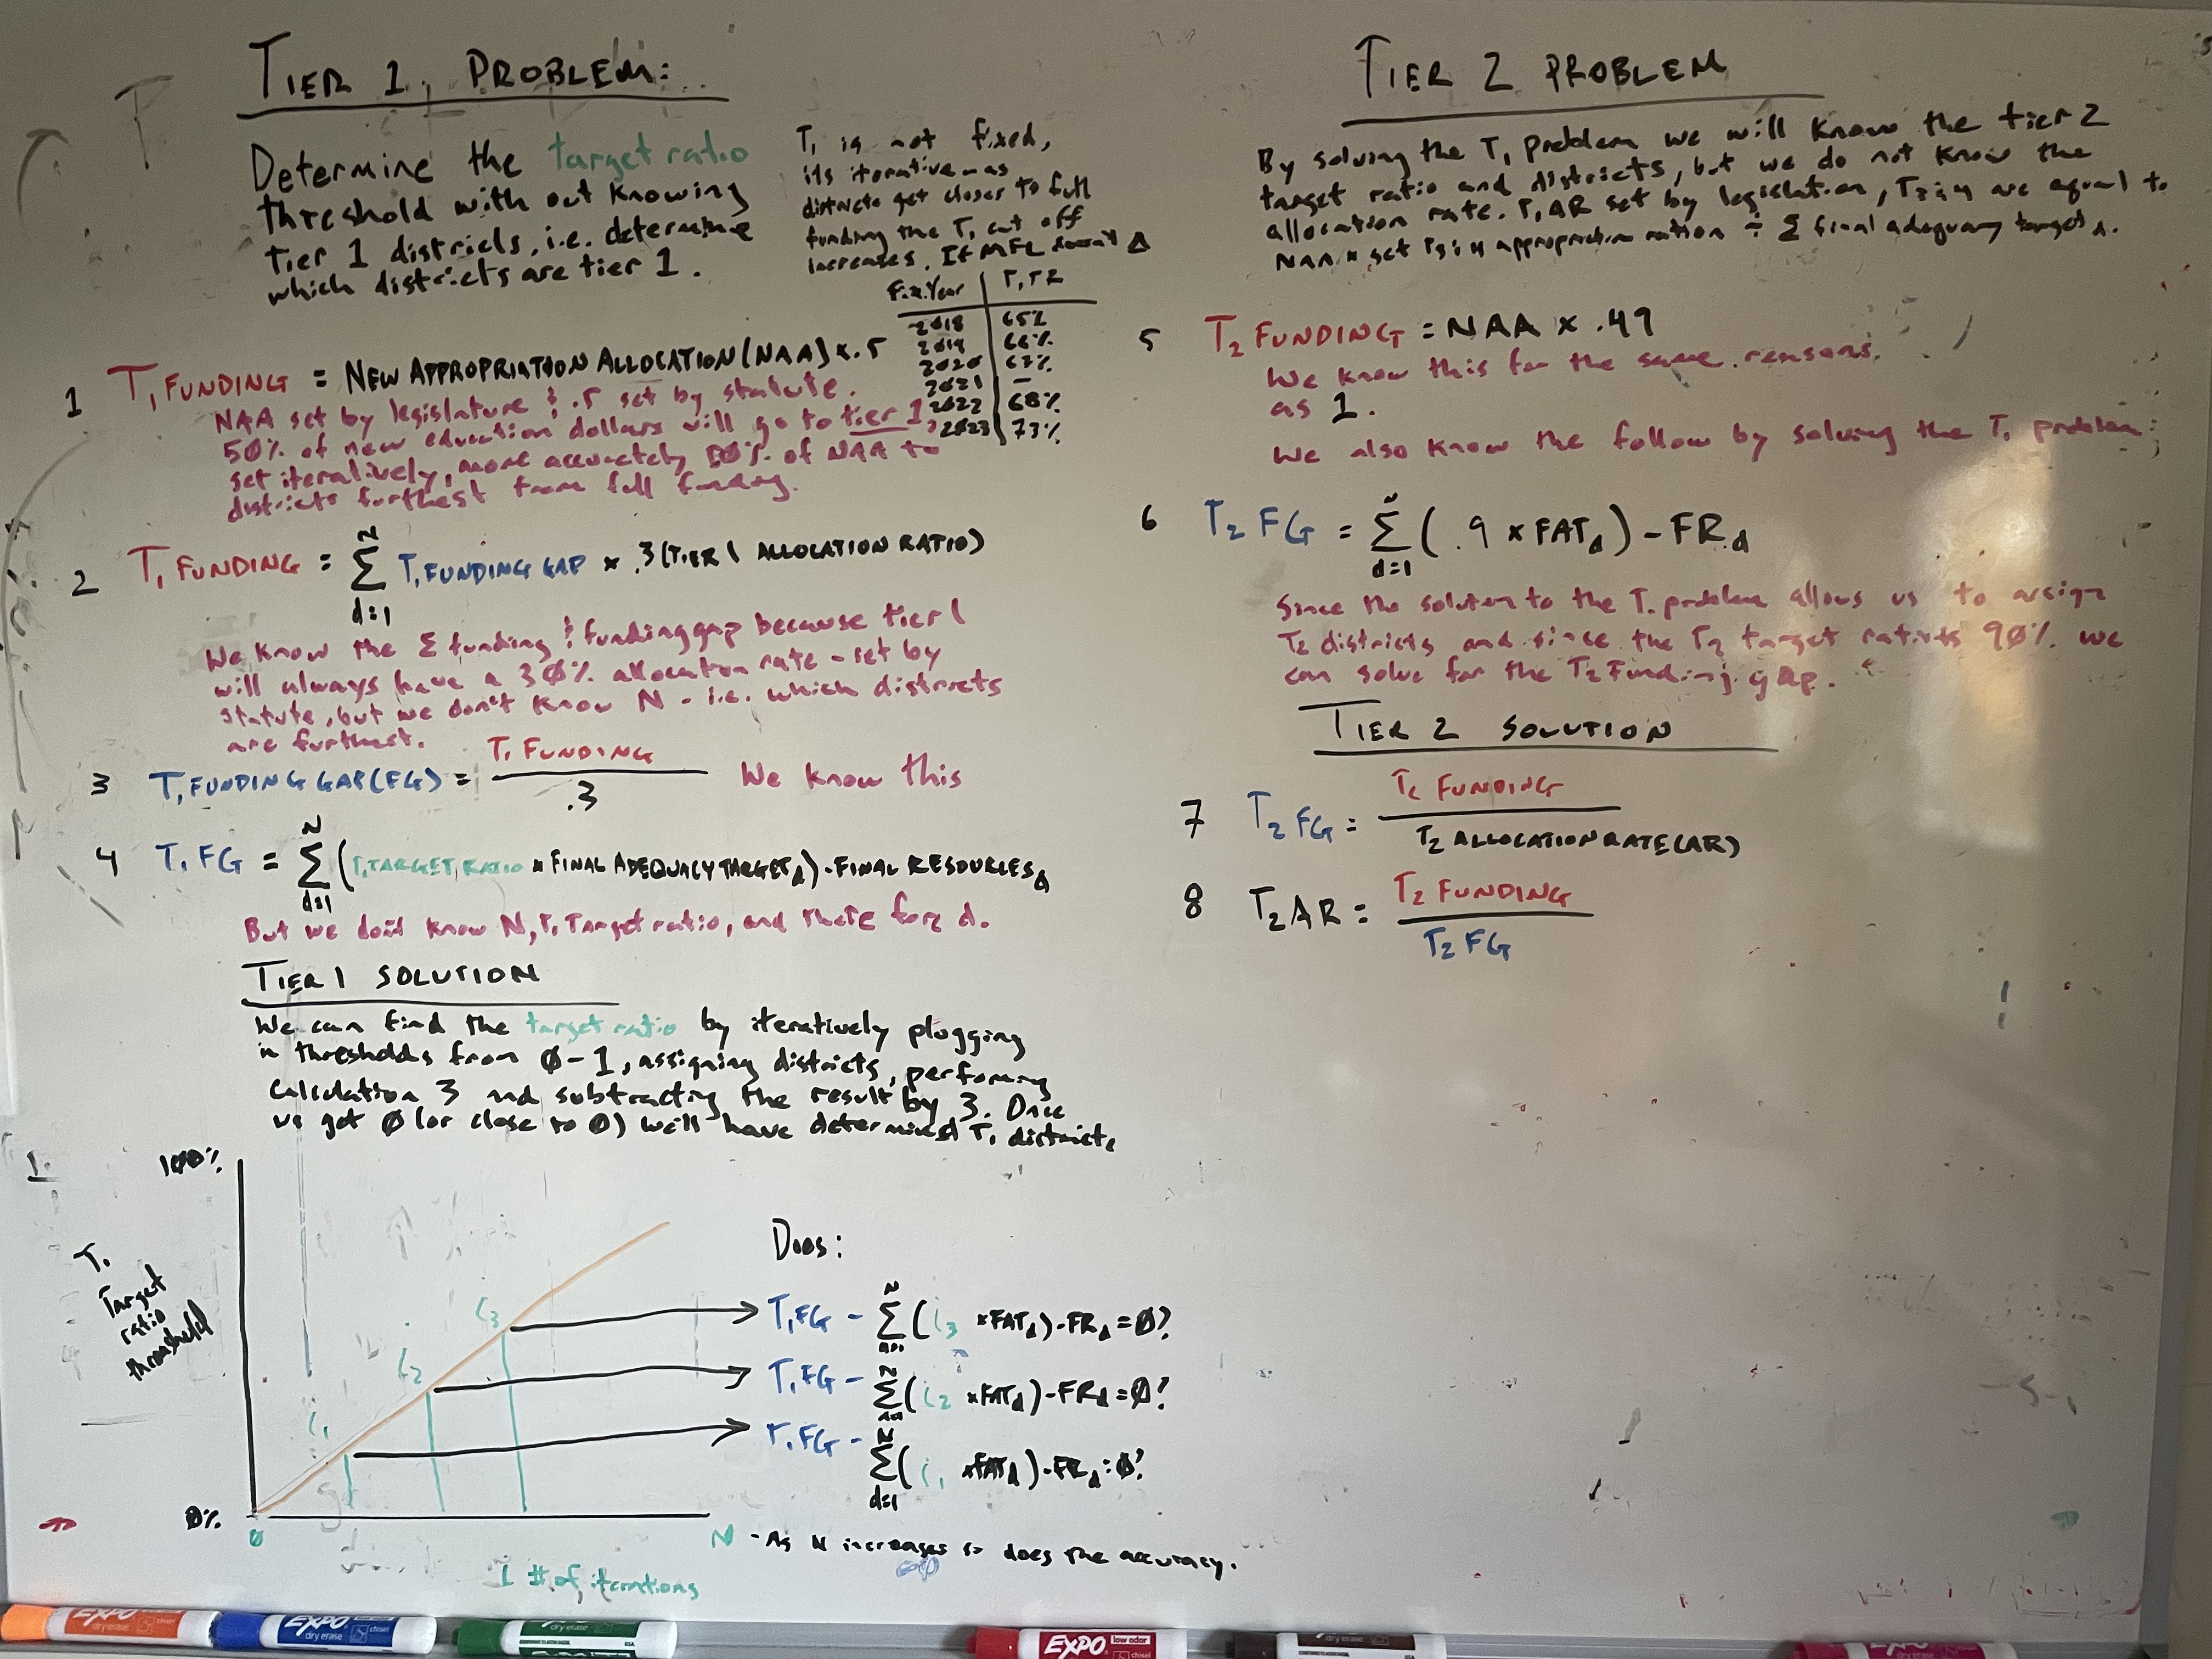 TIER 1 PROBLEM:
Determine the target ratio
threshold with out knowing
tier 1 districts, i.e. determine
which districts are tier 1.
T1 is not fixed,
its iterative - as
districts get closer to full
funding the T1 cut off
increases. If MFL doesn't Δ
Fis. Year | T1 TR
2018 65%
2019 66%
2020 67%
2021 -
2022 68%
2023 73%
1 T1 FUNDING = NEW APPROPRIATION ALLOCATION (NAA) x .5
NAA set by legislature & .5 set by statute.
50% of new education dollars will go to tier 1,
set iteratively, more accurately 50% of NAA to
districts furthest from full funding.
2 T1 FUNDING = N Σ d=1 T1 FUNDING GAP x .3 (TIER 1 ALLOCATION RATIO)
We know the Σ funding & funding gap because tier 1
will always have a 30% allocation rate - set by
statute, but we don't know N - i.e. which districts
are furthest.
3 T1 FUNDING GAP (FG) = T1 FUNDING / .3 We know this
4 T1 FG = N Σ d=1 (T1 TARGET RATIO x FINAL ADEQUACY TARGET d) - FINAL RESOURCES d
But we don't know N, T1 Target ratio, and there for d.
TIER 1 SOLUTION
We can find the target ratio by iteratively plugging
in thresholds from 0-1, assigning districts, performing
calculation 3 and subtracting the result by 3. Once
we get 0 (or close to 0) we'll have determined T1 districts
1.
100%
T1
Target
ratio
threshold
0%
0
i1
i2
i3
Does:
T1 FG - N Σ (i3 x FATd) - FRd = 0?
T1 FG - N Σ (i2 x FATd) - FRd = 0?
T1 FG - N Σ d=1 (i1 x FATd) - FRd = 0?
N - As N increases so does the accuracy.
I # of iterations
TIER 2 PROBLEM
By solving the T1 problem we will know the tier 2
target ratio and districts, but we do not know the
allocation rate. T1 AR set by legislation, T3 & 4 are equal to
NAA x set T3 & 4 appropriation ration ÷ Σ final adequacy targets d.
5 T2 FUNDING = NAA x .49
We know this for the same reasons
as 1.
We also know the follow by solving the T1 problem:
6 T2 FG = N Σ d=1 (.9 x FATd) - FRd
Since the solution to the T1 problem allows us to assign
T2 districts and since the T2 target ratio is 90% we
can solve for the T2 Funding gap.
TIER 2 SOLUTION
7 T2 FG = T2 FUNDING / T2 ALLOCATION RATE (AR)
8 T2 AR = T2 FUNDING / T2 FG
EXPO dry erase chisel
EXPO dry erase chisel
EXPO low odor dry erase chisel
dry erase
EXPO